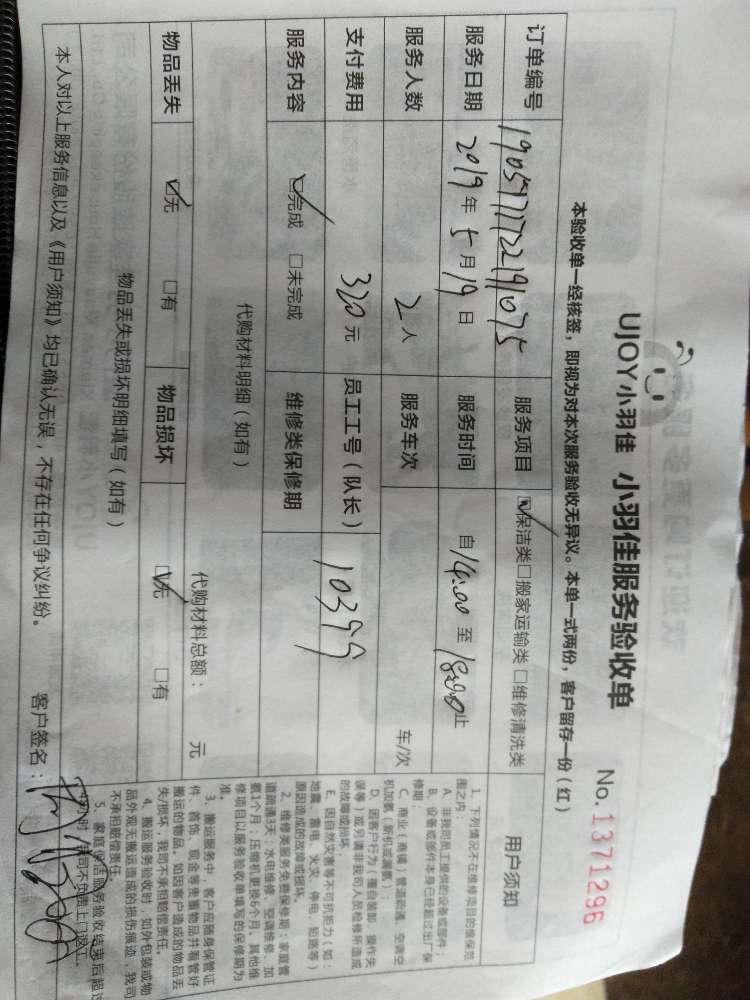 UJOY小羽佳 小羽佳服务验收单
No. 1371296
本验收单一经核签，即视为对本次服务验收无异议。本单一式两份，客户留存一份（红）
订单编号 服务项目 ☑保洁类 □搬家运输类 □维修清洗类
服务日期 2019年5月19日 服务时间 自14:00至18:00止
服务人数 2人 服务车次 车/次
支付费用 320元 员工工号（队长） 10399
服务内容 ☑完成 □未完成 维修类保修期
代购材料明细（如有） 代购材料总额： 元
物品丢失 ☑无 □有 物品损坏 ☑无 □有
物品丢失或损坏明细填写（如有）
本人对以上服务信息以及《用户须知》均已确认无误，不存在任何争议纠纷。 客户签名：
用户须知
1、下列情况不在维修项目的维保范
围之内：
A、非我司员工提供的设备或部件；
B、设备或部件本身已经超过出厂保
修期；
C、商业（商铺）管道疏通、空调空
机加氨（新机或漏氨）；
D、因客户行为（擅自装卸、操作失
误等）或另请非我司人员检修所造成
的故障或损坏。
E、因自然灾害等不可抗拒力（如：
地震、雷电、火灾、停电、短路等）
原因造成的故障或损坏。
2、维修类服务免费保修期：家庭管
道疏通3天；水电维修、空调维修、加
氨1个月；压缩机更换6个月，其他维
修项目以服务验收单填写的保修期为
准。
3、搬运服务中，客户应随身保管证
件、首饰、现金等贵重物品并看管好
搬运的物品，如因客户造成的物品丢
失/损坏，我司不承担赔偿责任。
4、搬运服务验收时，如外包装或物
品外观无搬运造成的损伤痕迹，我司
不承担赔偿责任。
5、家庭保洁服务验收结束后超过
小时，我司不负责上门返工。